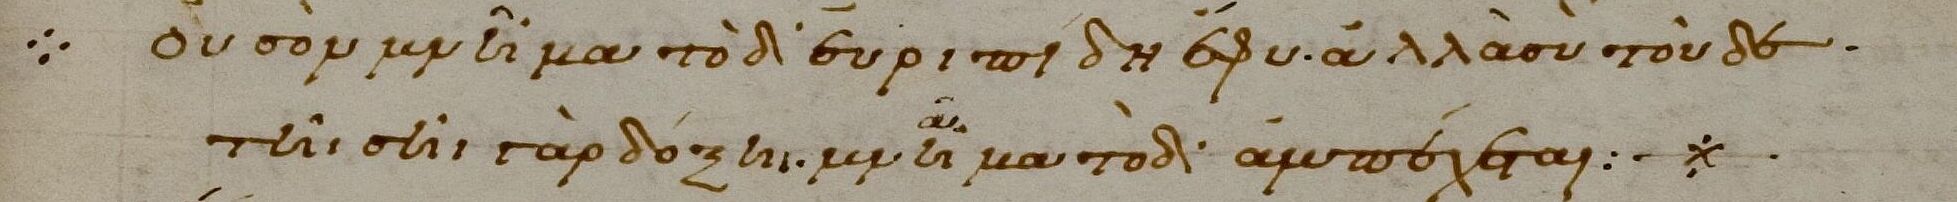 ⁘ οὐ σὸν μνῆμα τὸ δ' εὐριπίδη ἔφυ· ἀλλὰ σὺ τοῦδε·
τῆι σῆι γὰρ δόξηι· μνῆμα τὸ δ' ἀμπέχεται:- *·